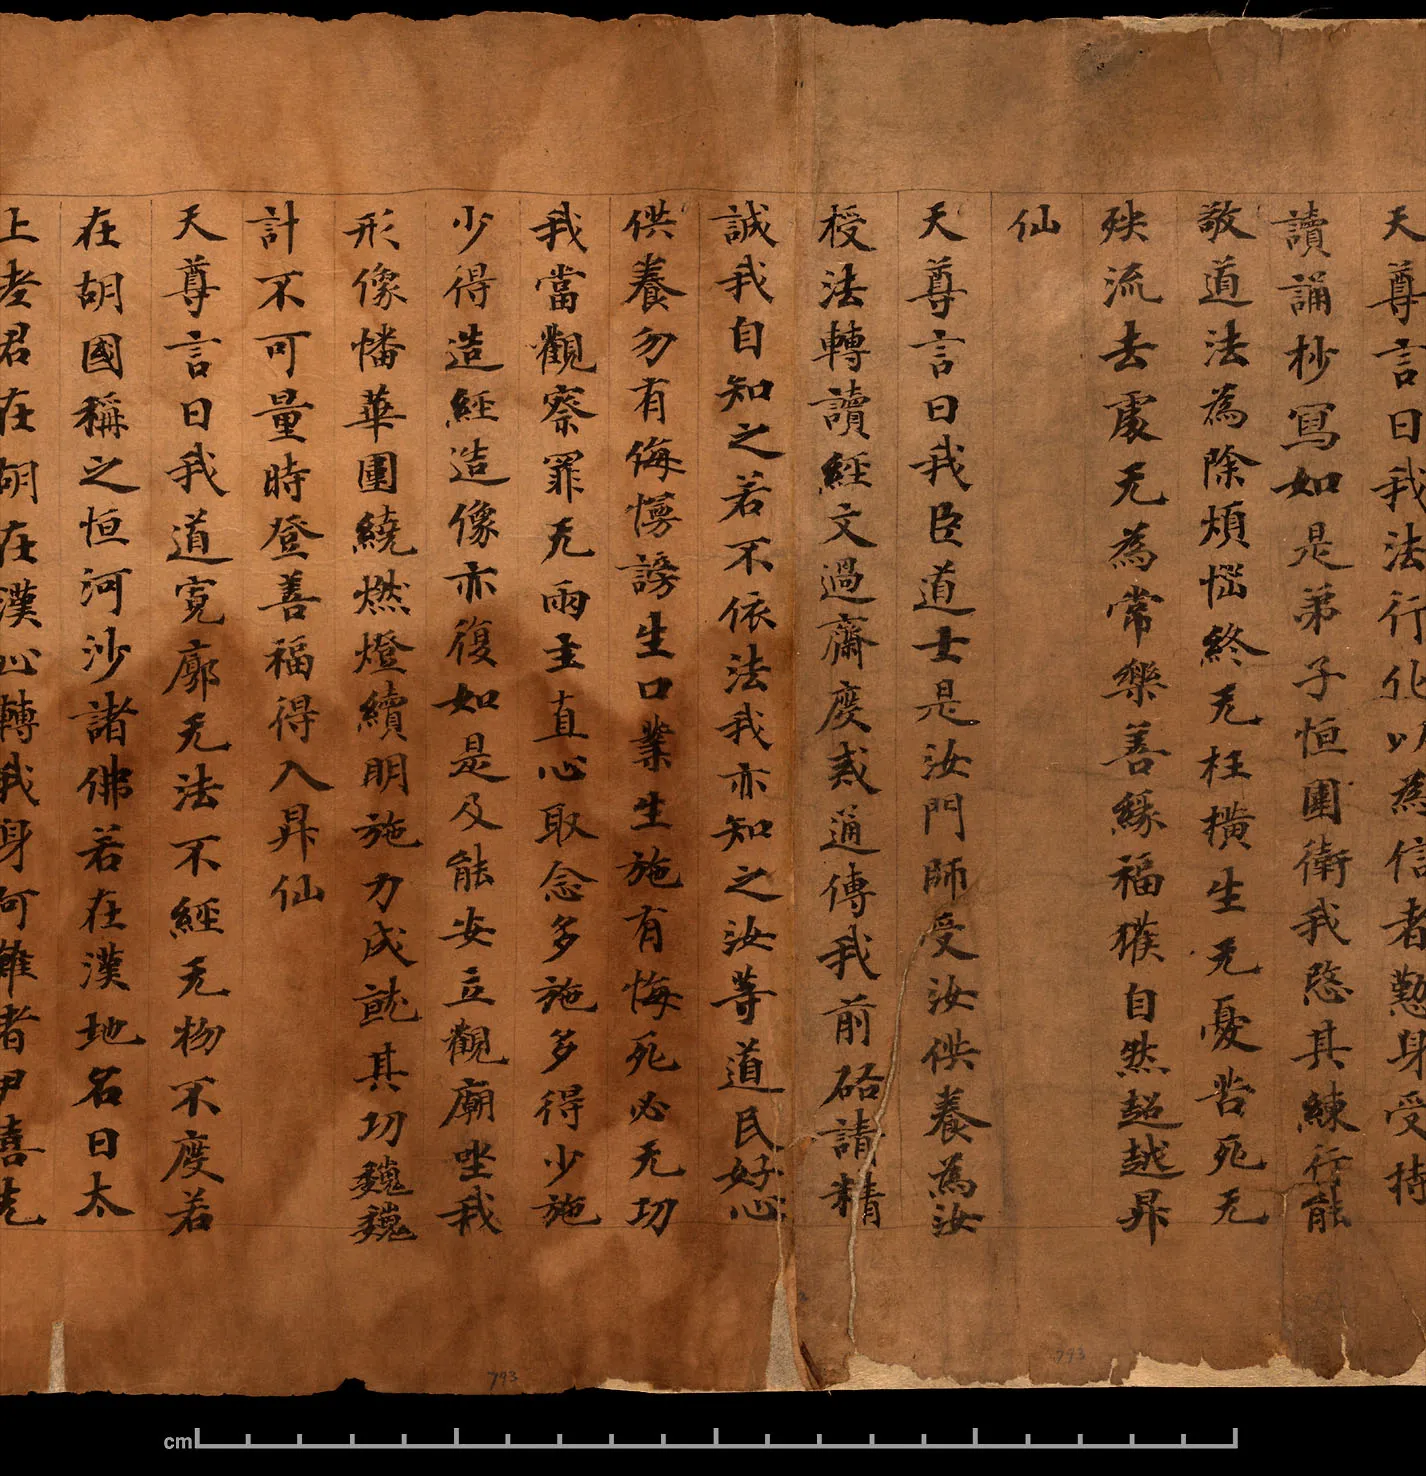 天尊言曰我法行化以為信者懃身受持
讀誦抄寫如是弟子恒圍衛我愍其練行能
敬道法為除煩惱終无枉橫生无憂苦死无
殃流去處无為常樂善緣福獲自然超越昇
仙
天尊言曰我臣道士是汝門師受汝供養為汝
授法轉讀經文過齋度戒通傳我前啟請精
誠我自知之若不依法我亦知之汝等道民好心
供養勿有侮慢謗生口業生施有悔死必无功
我當觀察罪无兩主直心取念多施多得少施
少得造經造像亦復如是及能安立觀廟坐我
形像幡華圍繞燃燈續明施力成就其功巍巍
計不可量時登善福得入昇仙
天尊言曰我道寬廓无法不經无物不度若
在胡國稱之恒河沙諸佛若在漢地名曰太
上老君在胡在漢心轉我身何難者尹喜先
793
793
cm